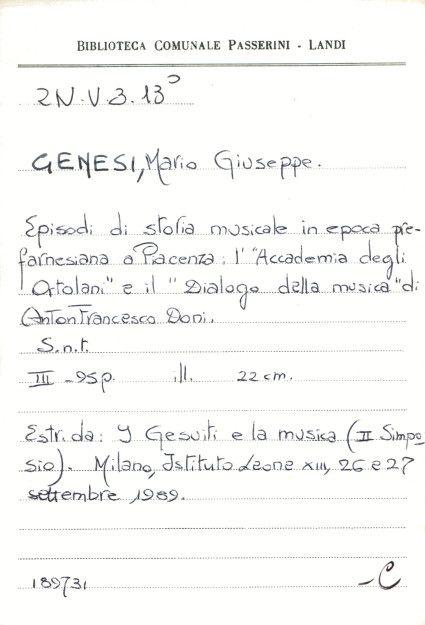 BIBLIOTECA COMUNALE PASSERINI - LANDI
2N.V.3.13°
GENESI, Mario Giuseppe.
Episodi di storia musicale in epoca pre-
farnesiana a Piacenza: l' "Accademia degli
Ortolani" e il "Dialogo della musica" di
Anton Francesco Doni.
S.n.t.
III - 95 p. ill. 22 cm.
Estr. da: I Gesuiti e la musica (II Simpo
sio). Milano, Istituto Leone XIII, 26 e 27
settembre 1989.
189731 -C